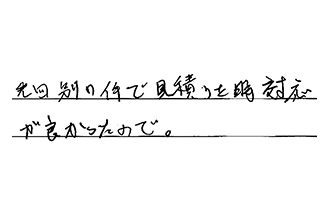 先回別の件で見積りた時対応
が良かったので。